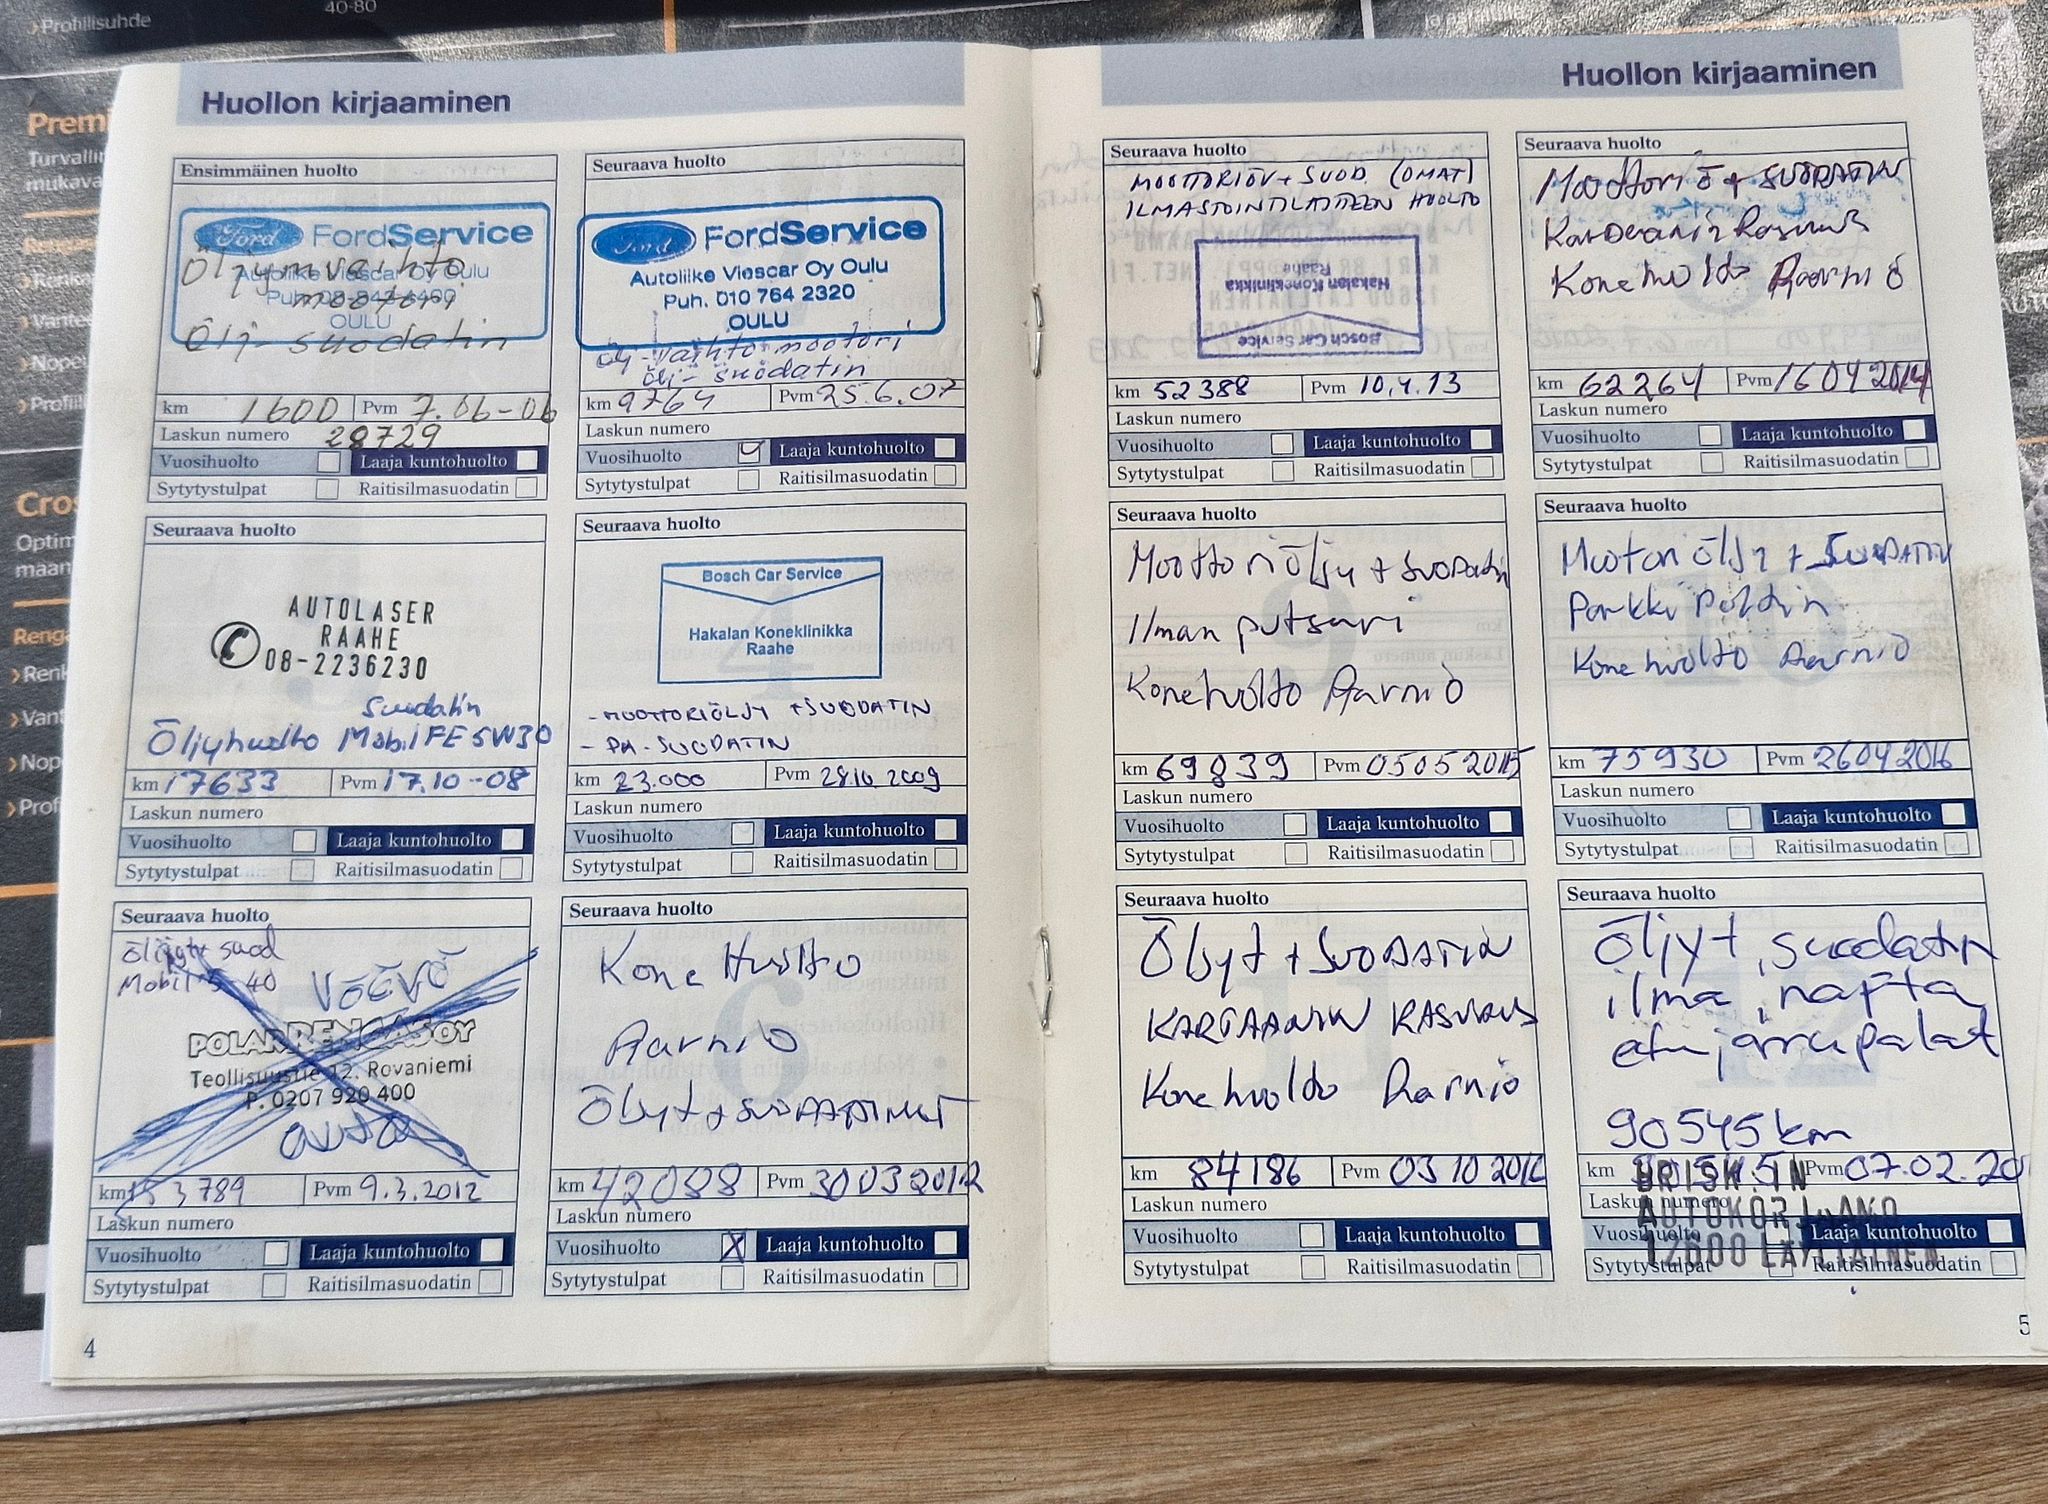 Profiilisuhde
40-80
Huollon kirjaaminen
Ensimmäinen huolto
Ford FordService
Autoliike Vioscar Oy Oulu
OULU
Öljynvaihto
moottori
Ölj-suodatin
km 1600 Pvm 7.06-06
Laskun numero 28729
Vuosihuolto Laaja kuntohuolto
Sytytystulpat Raitisilmasuodatin
Seuraava huolto
Ford FordService
Autoliike Vioscar Oy Oulu
Puh. 010 764 2320
OULU
Ölj-vaihto moottori
Ölj-suodatin
km 9764 Pvm 25.6.07
Laskun numero
Vuosihuolto Laaja kuntohuolto
Sytytystulpat Raitisilmasuodatin
Seuraava huolto
AUTOLASER
RAAHE
08-2236230
suodatin
Öljyhuolto Mobil FE 5W30
km 17633 Pvm 17.10-08
Laskun numero
Vuosihuolto Laaja kuntohuolto
Sytytystulpat Raitisilmasuodatin
Seuraava huolto
Bosch Car Service
Hakalan Koneklinikka
Raahe
- MOOTTORIÖLJY +SUODATIN
- PA-SUODATIN
km 23.000 Pvm 28.10.2009
Laskun numero
Vuosihuolto Laaja kuntohuolto
Sytytystulpat Raitisilmasuodatin
Seuraava huolto
suod
Mobil 5-40
POLARRENGASOY
Teollisuustie 12. Rovaniemi
P. 0207 920 400
auto
km Pvm 9.3.2012
Laskun numero
Vuosihuolto Laaja kuntohuolto
Sytytystulpat Raitisilmasuodatin
Seuraava huolto
Kone Huolto
Aarnio
Öljyt + SUODATIMET
km 42088 Pvm 30032012
Laskun numero
Vuosihuolto X Laaja kuntohuolto
Sytytystulpat Raitisilmasuodatin
4
Huollon kirjaaminen
Seuraava huolto
MOOTTORIÖV + SUOD. (OMAT)
ILMASTOINTILAITTEEN HUOLTO
Bosch Car Service
Hakalan Koneklinikka
Raahe
km 52388 Pvm 10.4.13
Laskun numero
Vuosihuolto Laaja kuntohuolto
Sytytystulpat Raitisilmasuodatin
Seuraava huolto
Moottori Ö + SUODATIN
Kardaanin Rasvaus
Konehuolto Aarnio
km 62264 Pvm 16042014
Laskun numero
Vuosihuolto Laaja kuntohuolto
Sytytystulpat Raitisilmasuodatin
Seuraava huolto
Moottoriöljy + suodatin
Ilman putsari
Konehuolto Aarnio
km 69839 Pvm 05052015
Laskun numero
Vuosihuolto Laaja kuntohuolto
Sytytystulpat Raitisilmasuodatin
Seuraava huolto
Mootori öljy + SUODATIN
Parkki Poltin
Konehuolto Aarnio
km 75930 Pvm 26042016
Laskun numero
Vuosihuolto Laaja kuntohuolto
Sytytystulpat Raitisilmasuodatin
Seuraava huolto
Öljyt + SUODATIN
KARTAANIN RASVAUS
Konehuolto Aarnio
km 84186 Pvm 03102016
Laskun numero
Vuosihuolto Laaja kuntohuolto
Sytytystulpat Raitisilmasuodatin
Seuraava huolto
Öljyt, suodatin
ilma, nafta
etujarrupalat
90545km
km 90545 Pvm 07.02.20
Laskun numero
Vuosihuolto Laaja kuntohuolto
Sytytystulpat Raitisilmasuodatin
12600 LÄYLIÄINEN
5